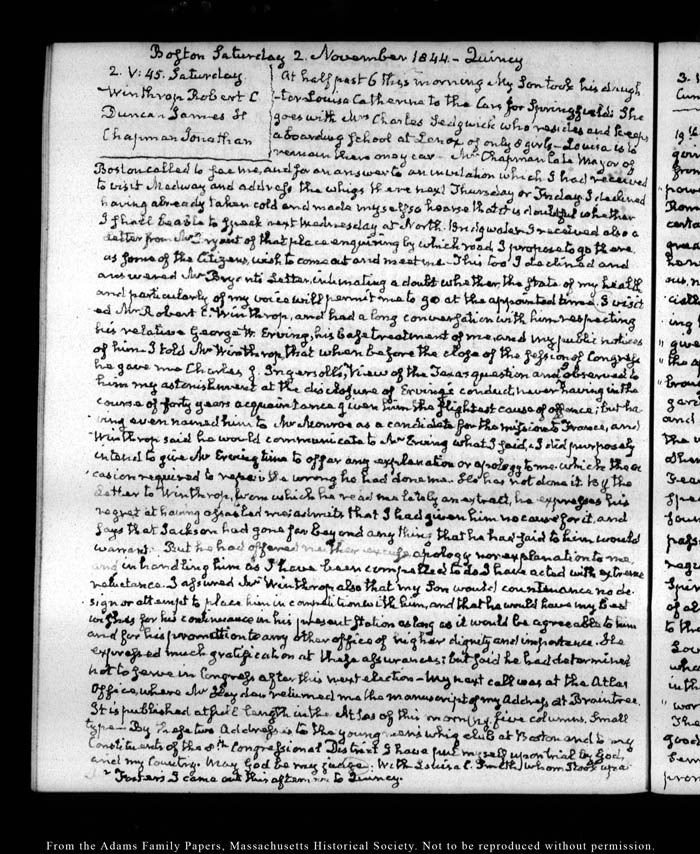 Boston Saturday 2. November 1844 - Quincy
2. V:45. Saturday
Winthrop Robert C
Duncan James H
Chapman Jonathan
At half past 6 this morning My Son took his daugh
-ter Louisa Catherine to the Cars for Springfield. She
goes with Mrs Charles Sedgwick who resides and keeps
a boarding School at Lenox of only 8 girls - Louisa is to
remain there one year - Mr Chapman late Mayor of
Boston called to see me, and for an answer to an invitation which I had received
to visit Medway and address the whigs there next Thursday or Friday. I declined
having already taken cold and made myself so hoarse that it is doubtful whether
I shall be able to speak next Wednesday at North Bridgwater. I received also a
Letter from Mr Bryant of that place enquiring by which road I propose to go there
as some of the Citizens wish to come out and meet me. This too I declined and
answered Mr Bryant's Letter, intimating a doubt whether the state of my health
and particularly of my voice will permit me to go at the appointed time. I visit
ed Mr Robert C. Winthrop, and had a long conversation with him respecting
his relative George W. Erving, his base treatment of me, and my public notices
of him. I told Mr Winthrop, that when before the close of the session of Congress
he gave me Charles J. Ingersoll's, View of the Texas question and observed to
him my astonishment at the disclosure of Erving's conduct never having in the
course of forty years acquaintance given him the slightest cause of offence; but ha
ving even named him to Mr Monroe as a candidate for the mission to France, and
Winthrop said he would communicate to Mr Erving what I said, I did purposely
intend to give Mr Erving time to offer any explanation or apology to me which the oc
casion required to repair the wrong he had done me. He has not done it. By the
Letter to Winthrop, from which he read me lately an extract, he expresses his
regret at having assailed me; admits that I had given him no cause for it, and
says that Jackson had gone far beyond any thing that he had said to him would
warrant. But he had offered neither excuse, apology nor explanation to me,
and in handling him as I have been compelled to do I have acted with extreme
reluctance. I assured Mr Winthrop also that my Son would countenance no de
sign or attempt to place him in competition with him, and that he would have my best
wishes for his continuance in his present Station as long as it would be agreeable to him
and for his promotion to any other office of higher dignity and importance. He
expressed much gratification at these assurances; but said he had determined
not to serve in Congress after this next election - My next call was at the Atlas
Office, where Mr Hayden returned me the manuscript of my Address at Braintree.
It is published at full length in the Atlas of this morning five columns. Small
type - By these two Addresses to the young men's whig club at Boston and to my
Constituents of the 8th Congressional District I have put myself upon trial by God,
and my Country. May God be my judge. With Louisa C. Smith, whom I took up at
Foster's I came out this afternoon to Quincy.